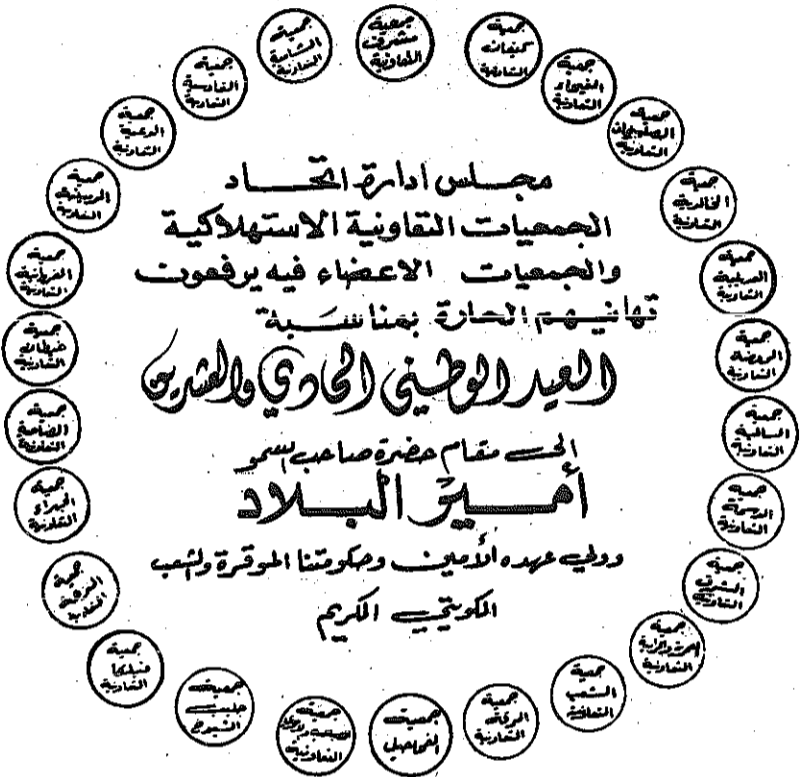 مجلس ادارة اتحاد
الجمعيات التعاونية الاستهلاكية
والجمعيات الاعضاء فيه يرفعون
تهانيهم الحارة بمناسبة
العيد الوطني الحادي والعشرين
الى مقام حضرة صاحب السمو
أمير البلاد
وولي عهده الأمين وحكومتنا الموقرة والشعب
الكويتي الكريم
جمعية
مشرف
التعاونية
جمعية
كيفان
التعاونية
جمعية
الفيحاء
التعاونية
جمعية
الصليبيخات
التعاونية
جمعية
الخالدية
التعاونية
جمعية
الصليبية
التعاونية
جمعية
الروضة
التعاونية
جمعية
السالمية
التعاونية
جمعية
الدسمة
التعاونية
جمعية
الشرق
التعاونية
جمعية
التعاونية
جمعية
الشعب
التعاونية
جمعية
الرقة
التعاونية
جمعية
الفحاحيل
جمعية
التعاونية
جمعية
جليب
الشيوخ
جمعية
ضاحية
التعاونية
جمعية
النزهة
التعاونية
جمعية
الجهراء
التعاونية
جمعية
الضاحية
التعاونية
جمعية
خيطان
التعاونية
جمعية
الفروانية
التعاونية
جمعية
الرميثية
التعاونية
جمعية
الدعية
التعاونية
جمعية
القادسية
التعاونية
جمعية
الشامية
التعاونية